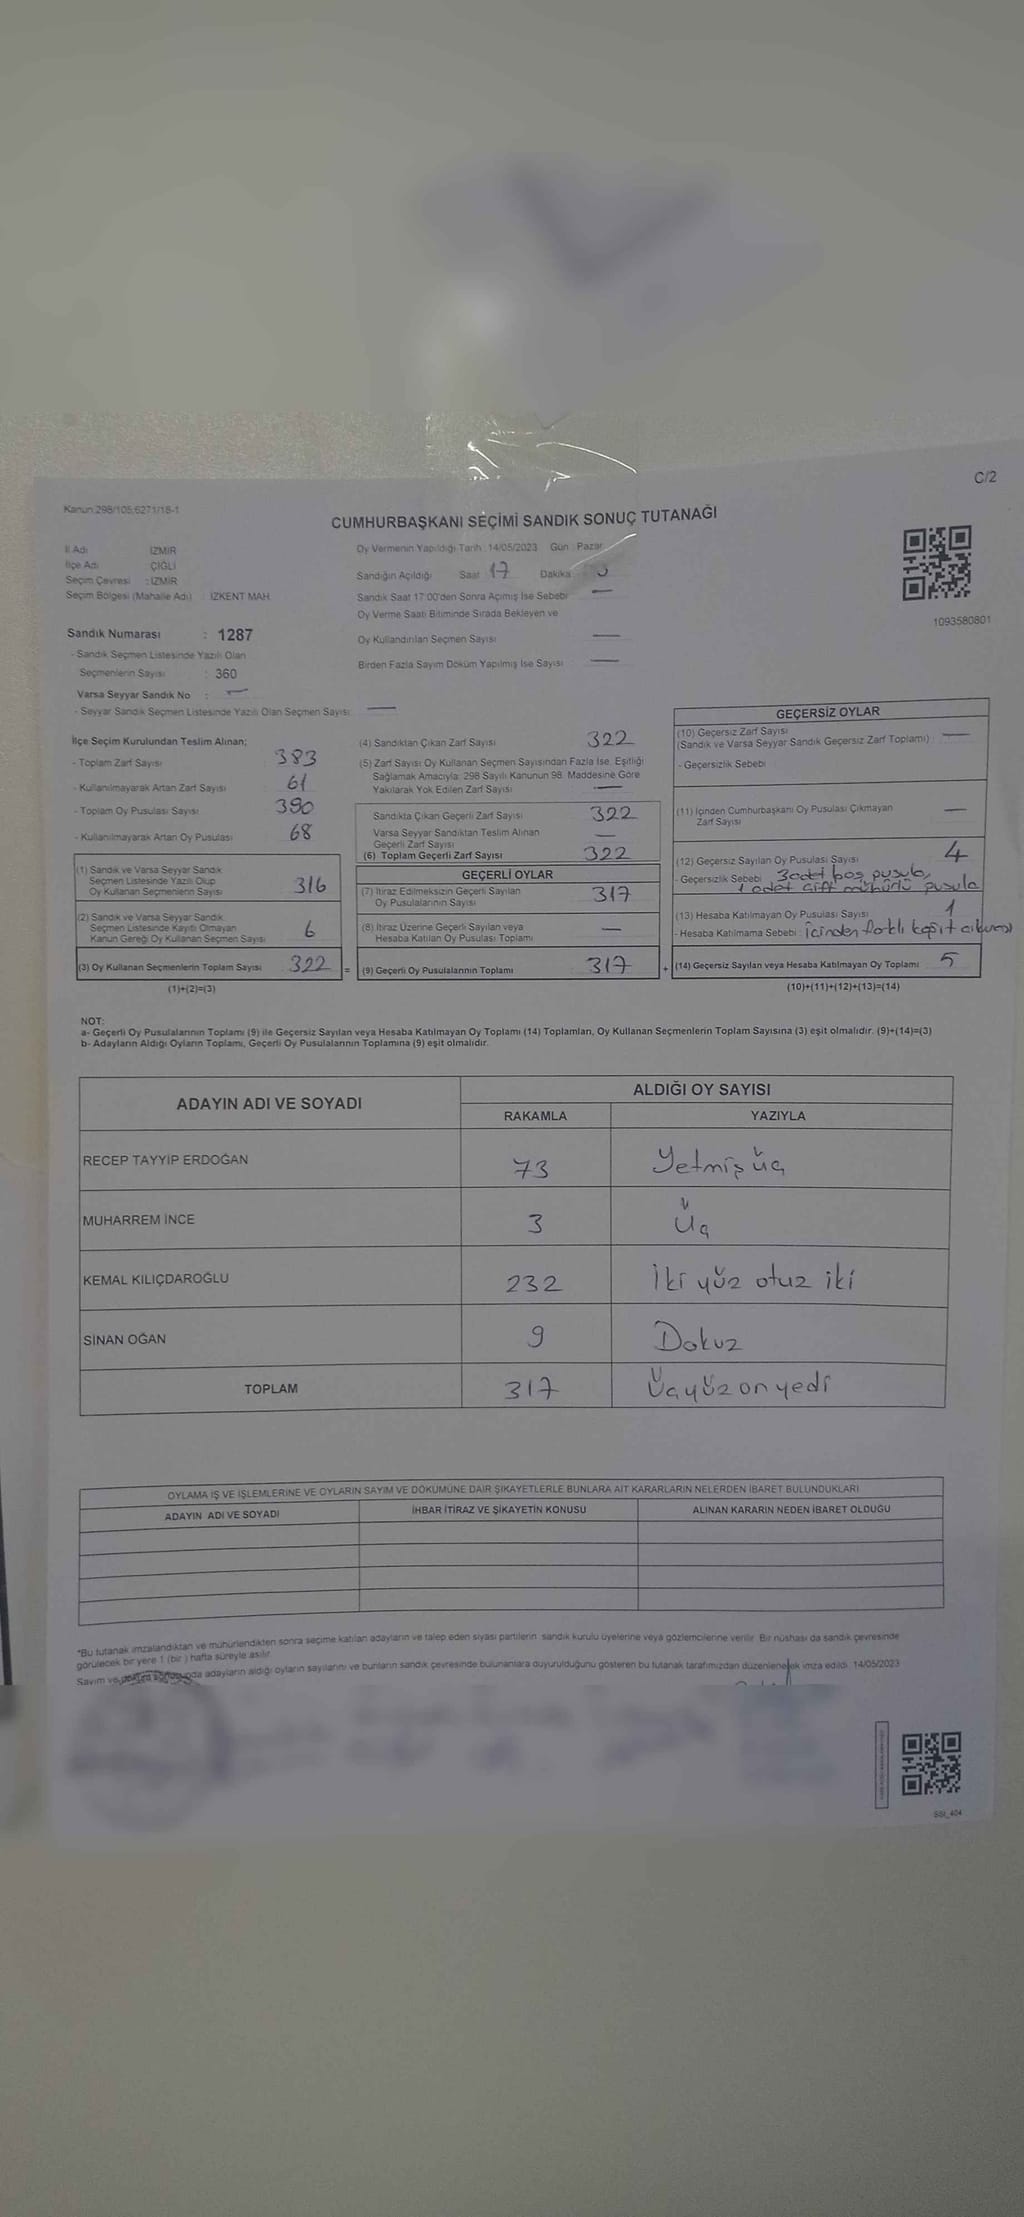 C/2
Kanun:298/105,6271/18-1
CUMHURBAŞKANI SEÇİMİ SANDIK SONUÇ TUTANAĞI
İl Adı İZMİR
İlçe Adı ÇİĞLİ
Seçim Çevresi : İZMİR
Seçim Bölgesi (Mahalle Adı) : İZKENT MAH.
Oy Vermenin Yapıldığı Tarih : 14/05/2023 Gün : Pazar
Sandığın Açıldığı Saat 17 Dakika
Sandık Saat 17:00'den Sonra Açılmış İse Sebebi —
Oy Verme Saati Bitiminde Sırada Bekleyen ve
Oy Kullandırılan Seçmen Sayısı —
Birden Fazla Sayım Döküm Yapılmış İse Sayısı —
1093580801
Sandık Numarası : 1287
- Sandık Seçmen Listesinde Yazılı Olan
Seçmenlerin Sayısı : 360
Varsa Seyyar Sandık No : —
- Seyyar Sandık Seçmen Listesinde Yazılı Olan Seçmen Sayısı : —
İlçe Seçim Kurulundan Teslim Alınan;
- Toplam Zarf Sayısı 383
- Kullanılmayarak Artan Zarf Sayısı 61
- Toplam Oy Pusulası Sayısı 390
- Kullanılmayarak Artan Oy Pusulası 68
(1) Sandık ve Varsa Seyyar Sandık
Seçmen Listesinde Yazılı Olup
Oy Kullanan Seçmenlerin Sayısı 316
(2) Sandık ve Varsa Seyyar Sandık
Seçmen Listesinde Kayıtlı Olmayan
Kanun Gereği Oy Kullanan Seçmen Sayısı 6
(3) Oy Kullanan Seçmenlerin Toplam Sayısı 322 =
(1)+(2)=(3)
(4) Sandıktan Çıkan Zarf Sayısı 322
(5) Zarf Sayısı Oy Kullanan Seçmen Sayısından Fazla İse, Eşitliği
Sağlamak Amacıyla; 298 Sayılı Kanunun 98. Maddesine Göre
Yakılarak Yok Edilen Zarf Sayısı —
Sandıkta Çıkan Geçerli Zarf Sayısı 322
Varsa Seyyar Sandıktan Teslim Alınan
Geçerli Zarf Sayısı —
(6) Toplam Geçerli Zarf Sayısı 322
GEÇERLİ OYLAR
(7) İtiraz Edilmeksizin Geçerli Sayılan
Oy Pusulalarının Sayısı 317
(8) İtiraz Üzerine Geçerli Sayılan veya
Hesaba Katılan Oy Pusulası Toplamı —
(9) Geçerli Oy Pusulalarının Toplamı 317 +
GEÇERSİZ OYLAR
(10) Geçersiz Zarf Sayısı
(Sandık ve Varsa Seyyar Sandık Geçersiz Zarf Toplamı) : —
- Geçersizlik Sebebi
(11) İçinden Cumhurbaşkanı Oy Pusulası Çıkmayan
Zarf Sayısı —
(12) Geçersiz Sayılan Oy Pusulası Sayısı 4
- Geçersizlik Sebebi 3 adet boş pusula,
1 adet çift mühürlü pusula
(13) Hesaba Katılmayan Oy Pusulası Sayısı 1
- Hesaba Katılmama Sebebi : İçinden farklı kağıt çıkması
(14) Geçersiz Sayılan veya Hesaba Katılmayan Oy Toplamı 5
(10)+(11)+(12)+(13)=(14)
NOT:
a- Geçerli Oy Pusulalarının Toplamı (9) ile Geçersiz Sayılan veya Hesaba Katılmayan Oy Toplamı (14) Toplamları, Oy Kullanan Seçmenlerin Toplam Sayısına (3) eşit olmalıdır. (9)+(14)=(3)
b- Adayların Aldığı Oyların Toplamı, Geçerli Oy Pusulalarının Toplamına (9) eşit olmalıdır.
ADAYIN ADI VE SOYADI ALDIĞI OY SAYISI
RAKAMLA YAZIYLA
RECEP TAYYİP ERDOĞAN 73 Yetmiş üç
MUHARREM İNCE 3 Üç
KEMAL KILIÇDAROĞLU 232 İki yüz otuz iki
SİNAN OĞAN 9 Dokuz
TOPLAM 317 Üçyüz on yedi
OYLAMA İŞ VE İŞLEMLERİNE VE OYLARIN SAYIM VE DÖKÜMÜNE DAİR ŞİKAYETLERLE BUNLARA AİT KARARLARIN NELERDEN İBARET BULUNDUKLARI
ADAYIN ADI VE SOYADI İHBAR İTİRAZ VE ŞİKAYETİN KONUSU ALINAN KARARIN NEDEN İBARET OLDUĞU
*Bu tutanak imzalandıktan ve mühürlendikten sonra seçime katılan adayların ve talep eden siyasi partilerin sandık kurulu üyelerine veya gözlemcilerine verilir. Bir nüshası da sandık çevresinde
görülecek bir yere 1 (bir) hafta süreyle asılır.
Sayım ve adayların aldığı oyların sayılarını ve bunların sandık çevresinde bulunanlara duyurulduğunu gösteren bu tutanak tarafımızdan düzenlenerek imza edildi. 14/05/2023